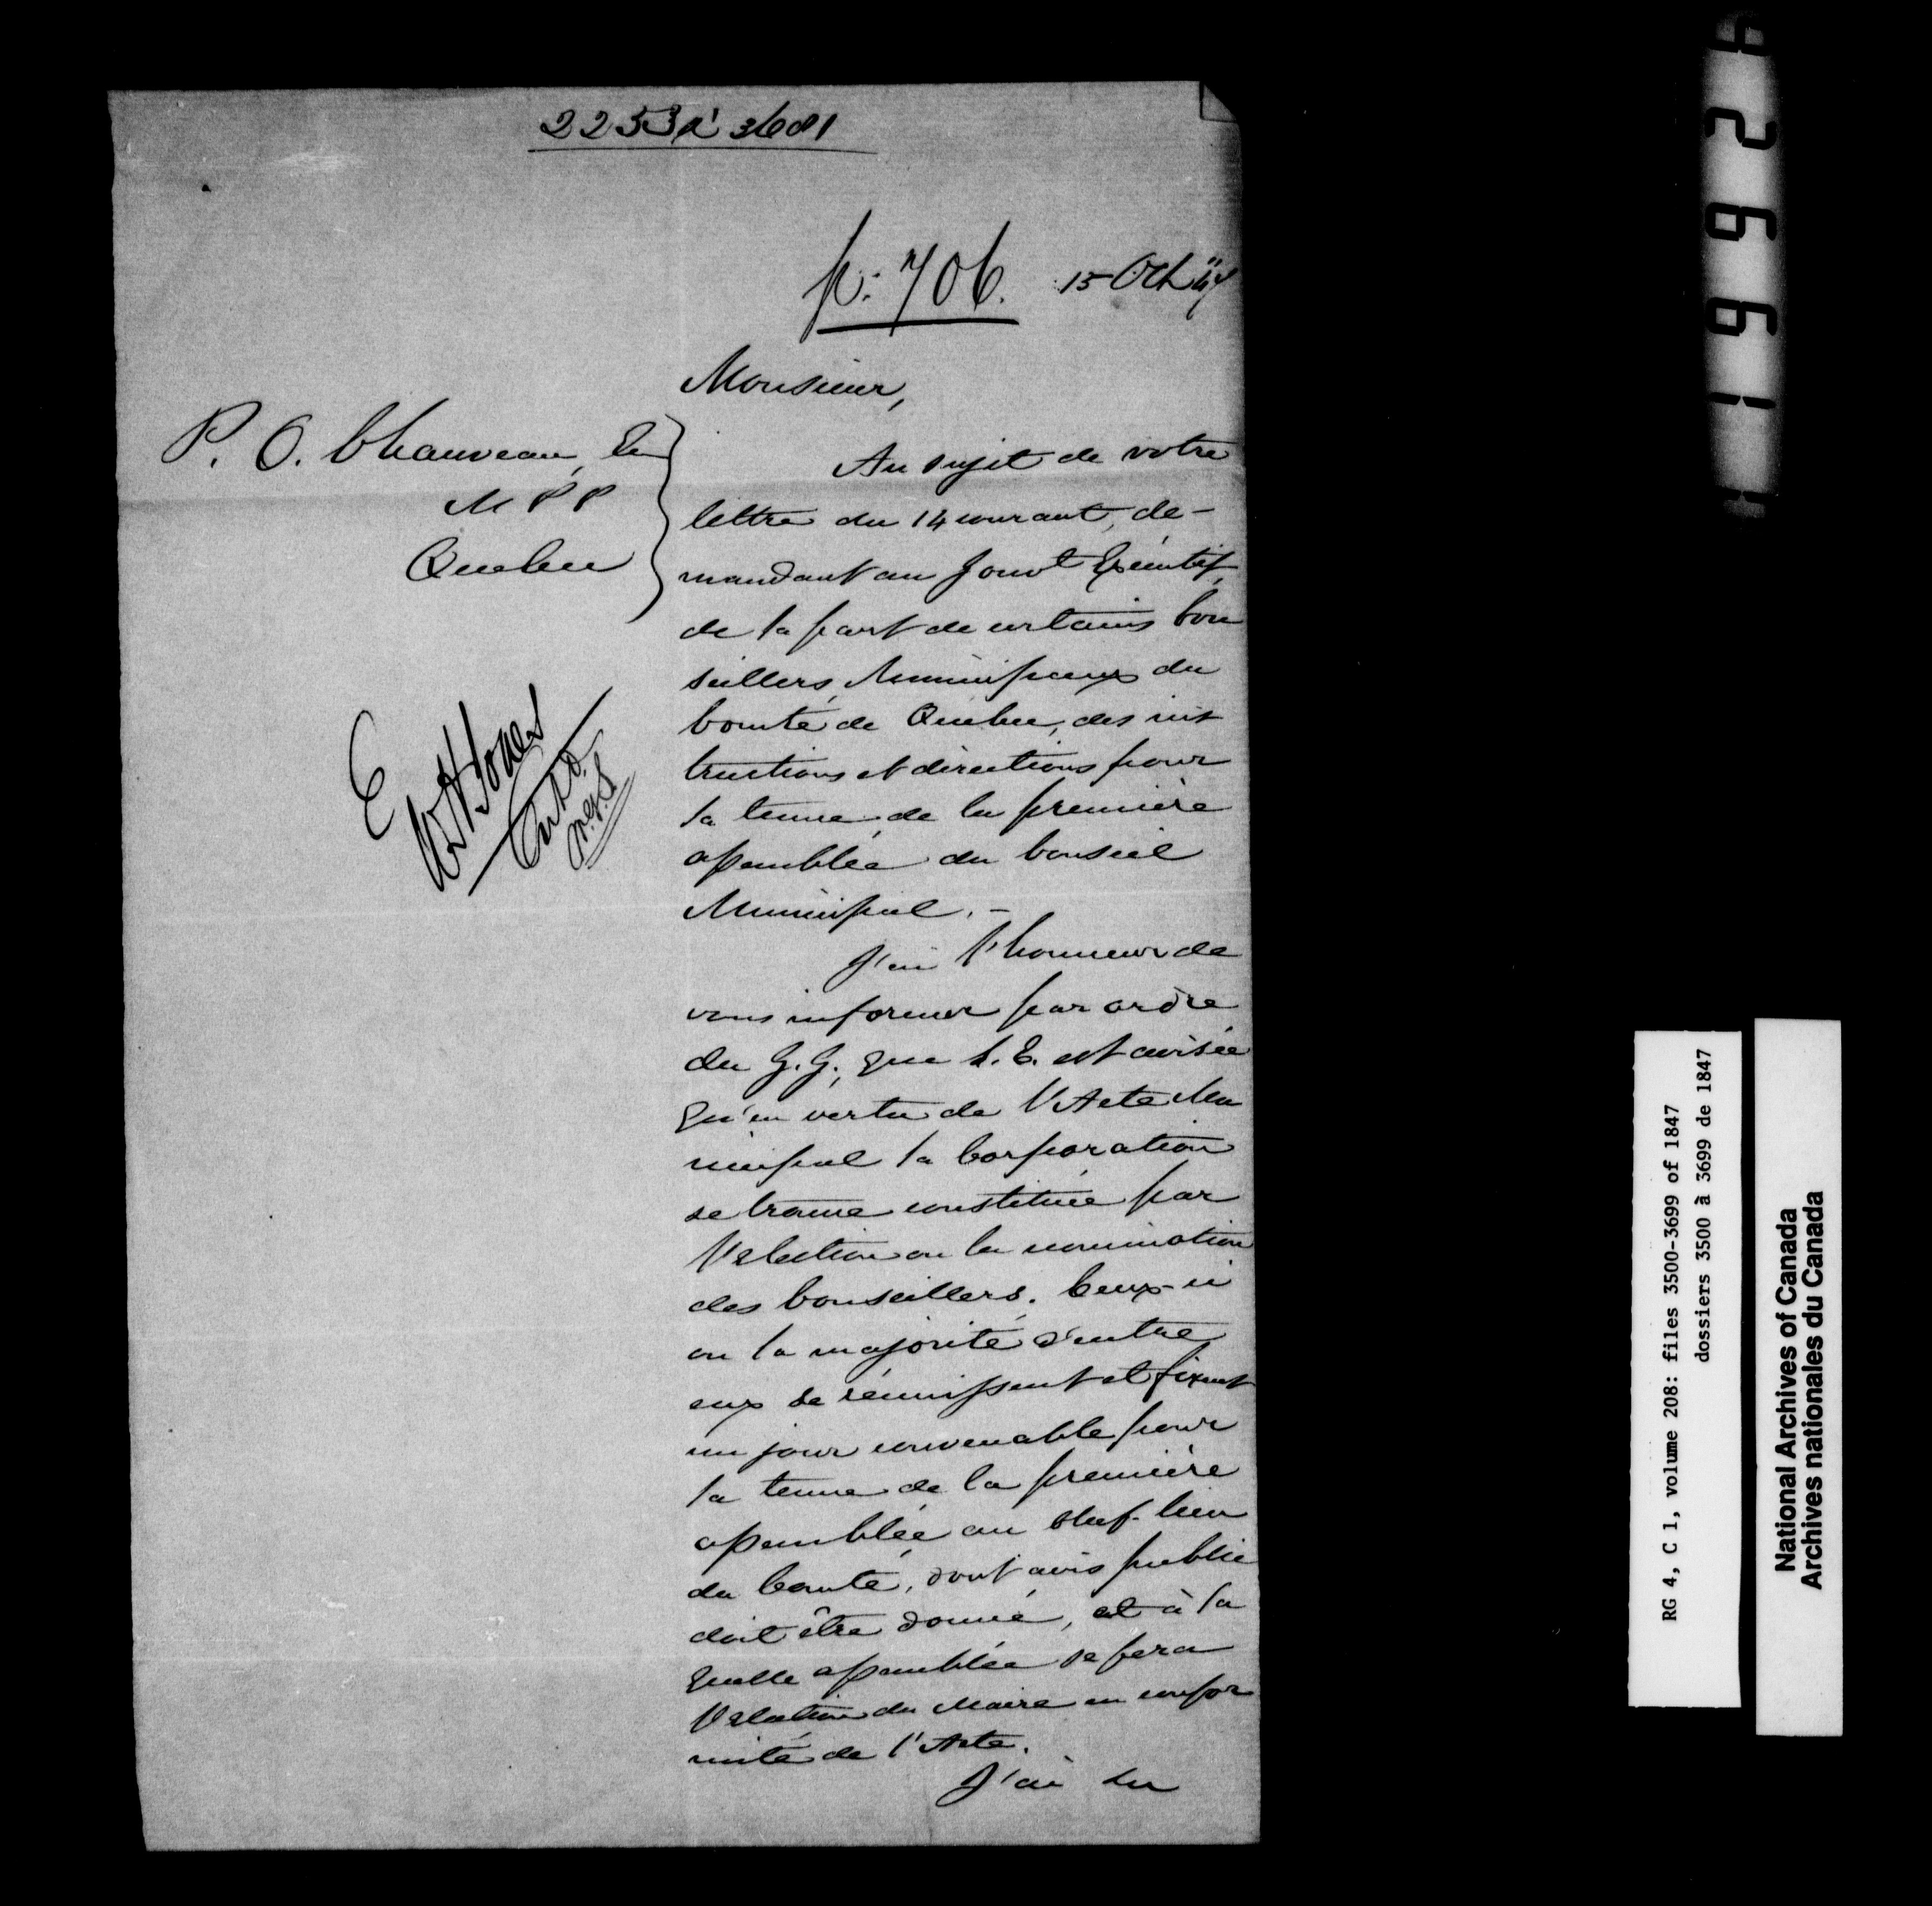 2253 à 3681
p: 706. 15 Oct "47
Monsieur,
P. O. Chauveau, Er
M P P
Quebec
Au sujet de votre
lettre du 14 courant, de-
mandant au Gouvt Exécutif,
de la part de certains Con
seillers Municipaux du
Comté de Québec, des ins
tructions et directions pour
la tenue de la première
assemblée du Conseil
Municipal. -
J'ai l'honneur de
vous informer par ordre
du G. G., que S. E. est avisée
qu'en vertu de l'Acte Mu
nicipal la Corporation
se trouve constituée par
l'election ou la nomination
des Conseillers. Ceux-ci
ou la majorité d'entre
eux se réunissent et fixent
un jour convenable pour
la tenue de la première
assemblée au chef-lieu
du Comté, dont avis public
doit être donné, et à la
quelle assemblée se fera
l'election du Maire en confor
mité de l'Acte.
J'ai &c
E
W H Jones
RG 4, C 1, volume 208: files 3500-3699 of 1847
dossiers 3500 à 3699 de 1847
National Archives of Canada
Archives nationales du Canada